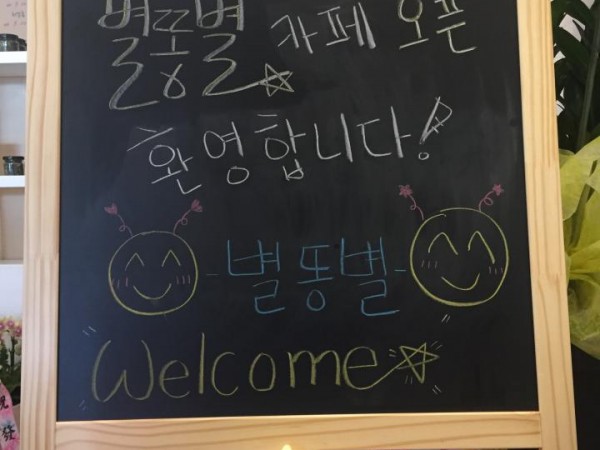 별똥별 카페 오픈
환영합니다!
-별똥별-
Welcome
發